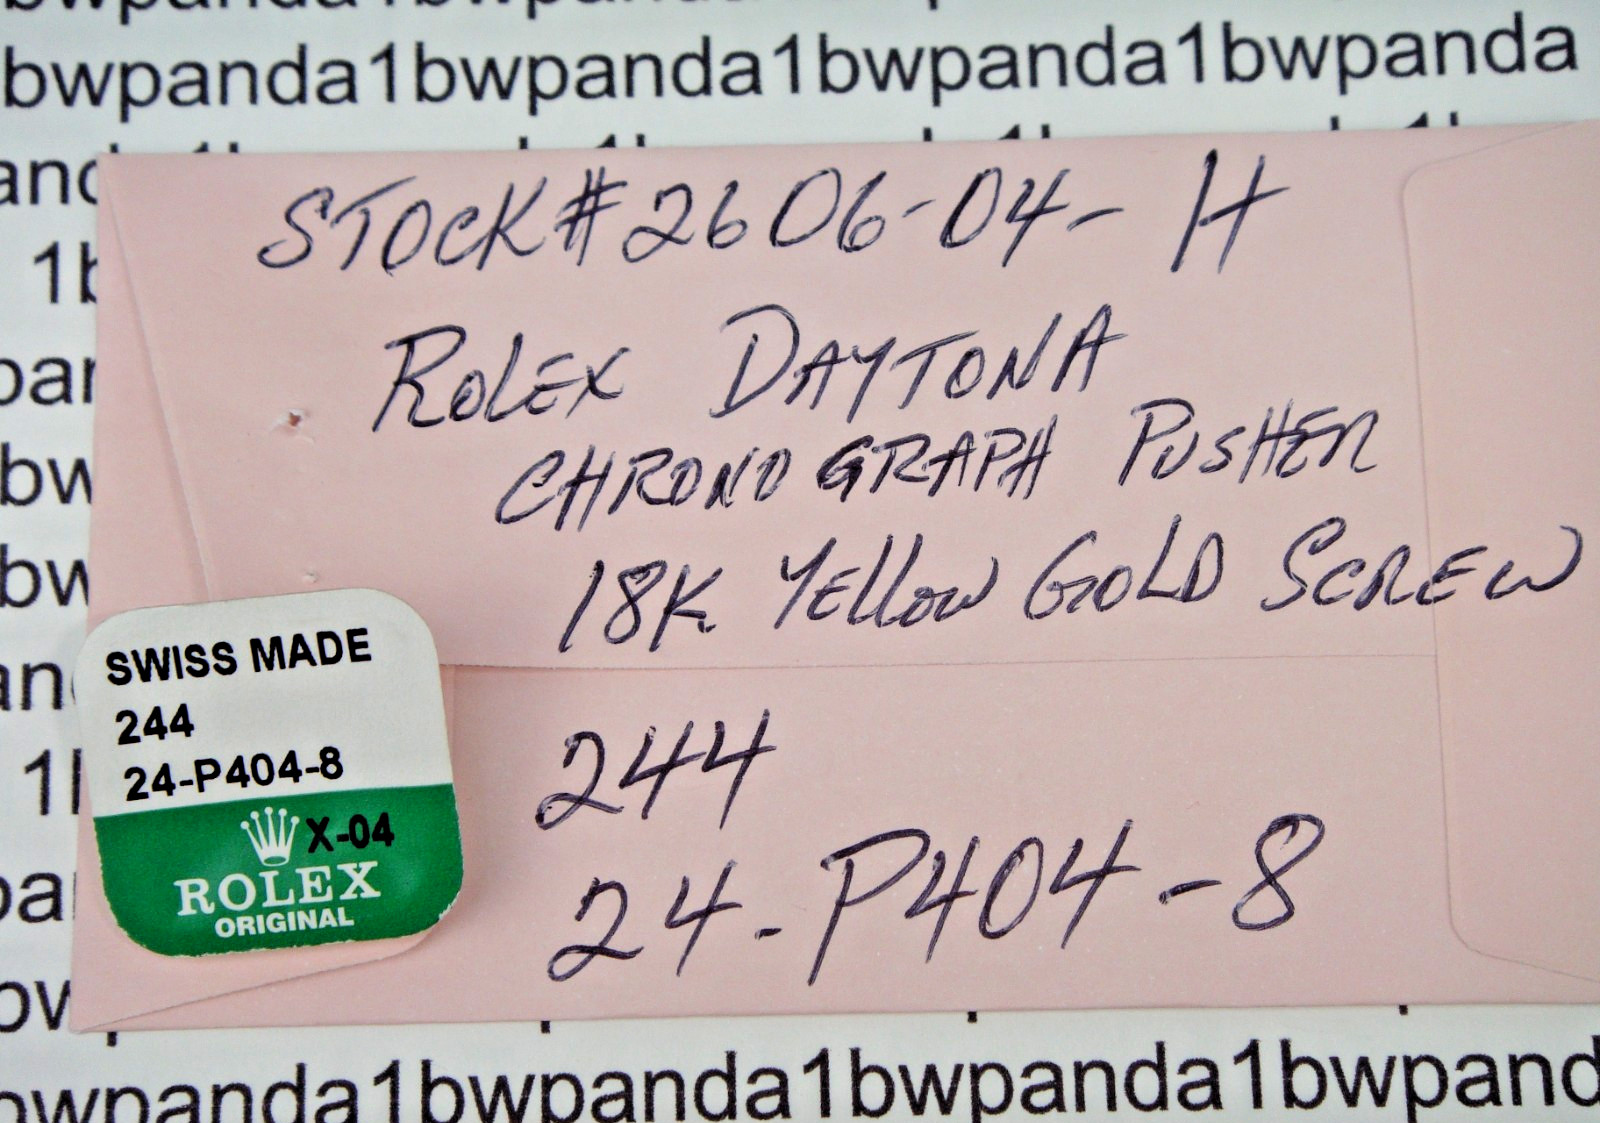 bwpanda1bwpanda1bwpanda1bwpanda
STOCK#2606-04-H
ROLEX DAYTONA
CHRONOGRAPH PUSHER
18K YELLOW GOLD SCREW
SWISS MADE
244
24-P404-8
X-04
ROLEX
ORIGINAL
244
24-P404-8
bwpanda1bwpanda1bwpanda1bwpand